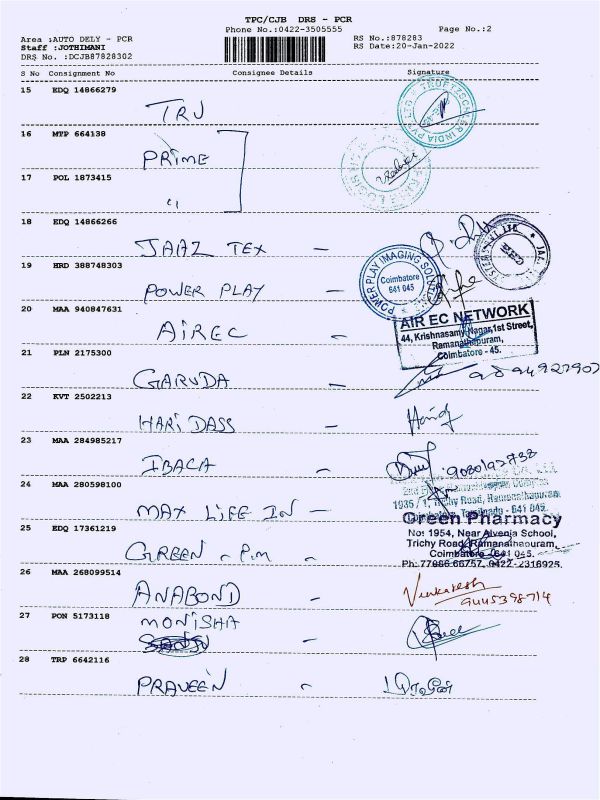 TPC/CJB DRS - PCR
Phone No.:0422-3505555
Page No.:2
Area :AUTO DELY - PCR
RS No.:878283
Staff :JOTHIMANI
RS Date:20-Jan-2022
DRS No. :DCJB87828302
S No Consignment No Consignee Details Signature
15 EDQ 14866279
TRU
16 MTP 664138
PRIME
17 POL 1873415
"
18 EDQ 14866266
JAAZ TEX –
19 HRD 388748303
POWER PLAY –
POWER PLAY IMAGING
Coimbatore
641 045
20 MAA 940847631
AIREC –
AIR EC NETWORK
44, Krishnasamy Nagar,1st Street,
Ramanathapuram,
Coimbatore - 45.
21 PLN 2175300
GARUDA –
22 KVT 2502213
HARI DASS –
23 MAA 284985217
IBACA –
24 MAA 280598100
1935 / 1, Trichy Road, Ramanathapuram
Coimbatore, Tamilnadu - 641 045.
MAX LIFE IN –
25 EDQ 17361219
Green Pharmacy
No: 1954, Near Alvenia School,
Trichy Road, Ramanathapuram,
Coimbatore - 641 045.
GREEN – P.m
26 MAA 268099514
ANABOND –
Venkatesh
27 PON 5173118
MONISHA –
28 TRP 6642116
PRAVEEN –
பிரவீன்